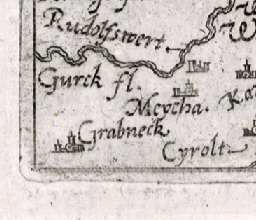 Rudolfswert
Gurck fl.
Meycha.
Grabneck
Cyrolt